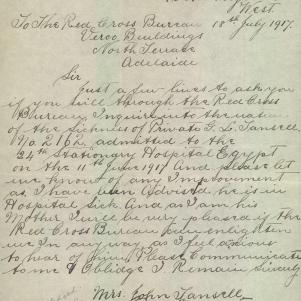 West.
To The Red Cross Bureau 18th July 1917.
Verco Buildings
North Terrace
Adelaide
Sir
Just a few lines to ask you
if you will through the Red Cross
Bureau Inquire into the nature
of the sickness of Private F. L. Tansell
No. 2162, admitted to the
24th Stationary Hospital Egypt
on the 11th June 1917 and please let
me know of any improvement
as I have been advised he is in
Hospital Sick And as I am his
Mother I will be very pleased if the
Red Cross Bureau can enlighten
me In any way as I feel anxious
to hear of him Please Communicate
to me & Oblidge I Remain Sincerely
Mrs. John Tansell